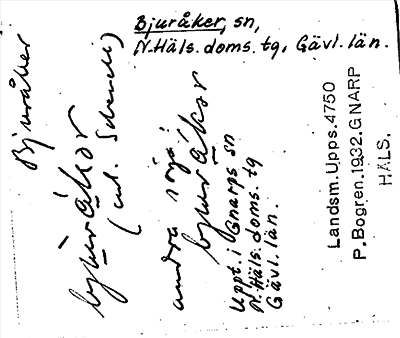 Bjuråker, sn,
N.Häls. doms. tg, Gävl. län.
Bjuråker
(enl. Schenell)
andra säga:
Uppt. i Gnarps sn
N.Häls. doms. tg
Gävl. län.
Landsm. Upps. 4750
P. Bogren. 1932. GNARP
HÄLS.